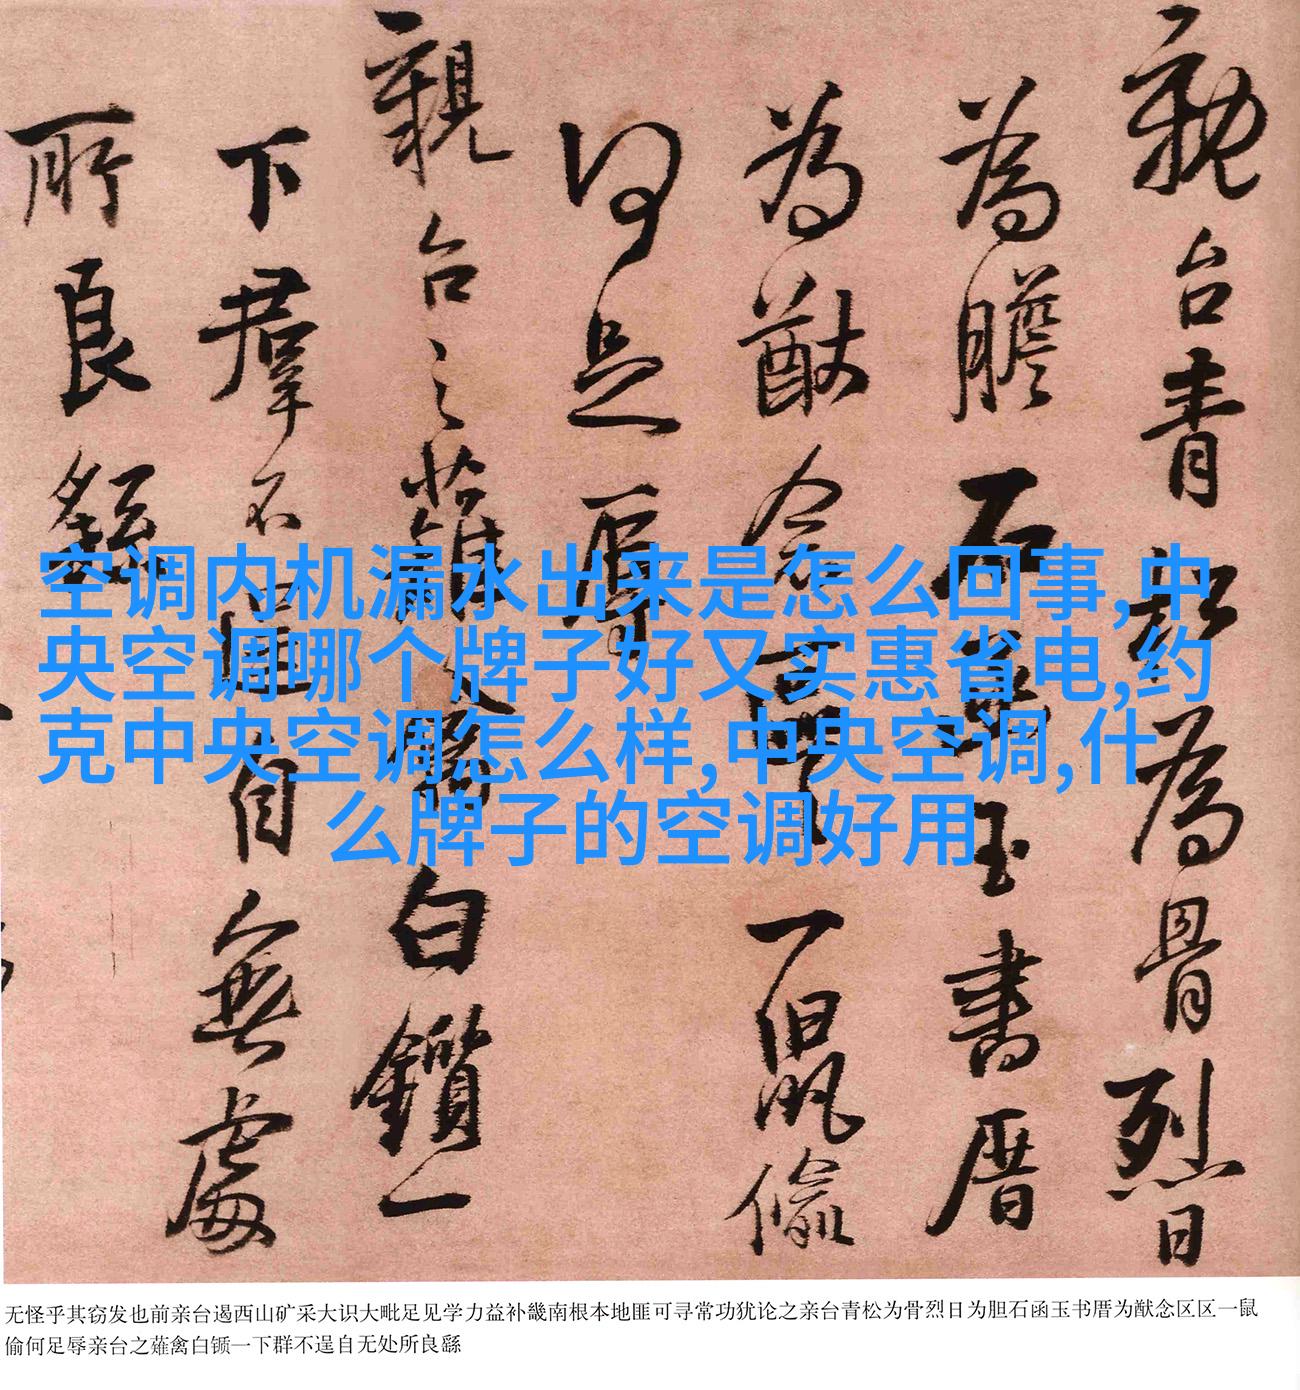 親台青松為骨烈日
為膽石函玉書厝
為猷念區區一鼠偷
何足辱
親台之薙禽白鑕一
下羣不逞自無處
所良繇
空调内机漏水出来是怎么回事,中
央空调哪个牌子好又实惠省电,约
克中央空调怎么样,中央空调,什
么牌子的空调好用
无怪乎其窃发也前亲台遏西山矿采大识大毗足见学力益补畿南根本地匪可寻常功犹论之亲台青松为骨烈日为胆石函玉书厝为猷念区区一鼠
偷何足辱亲台之薙禽白锧一下群不逞自无处所良繇